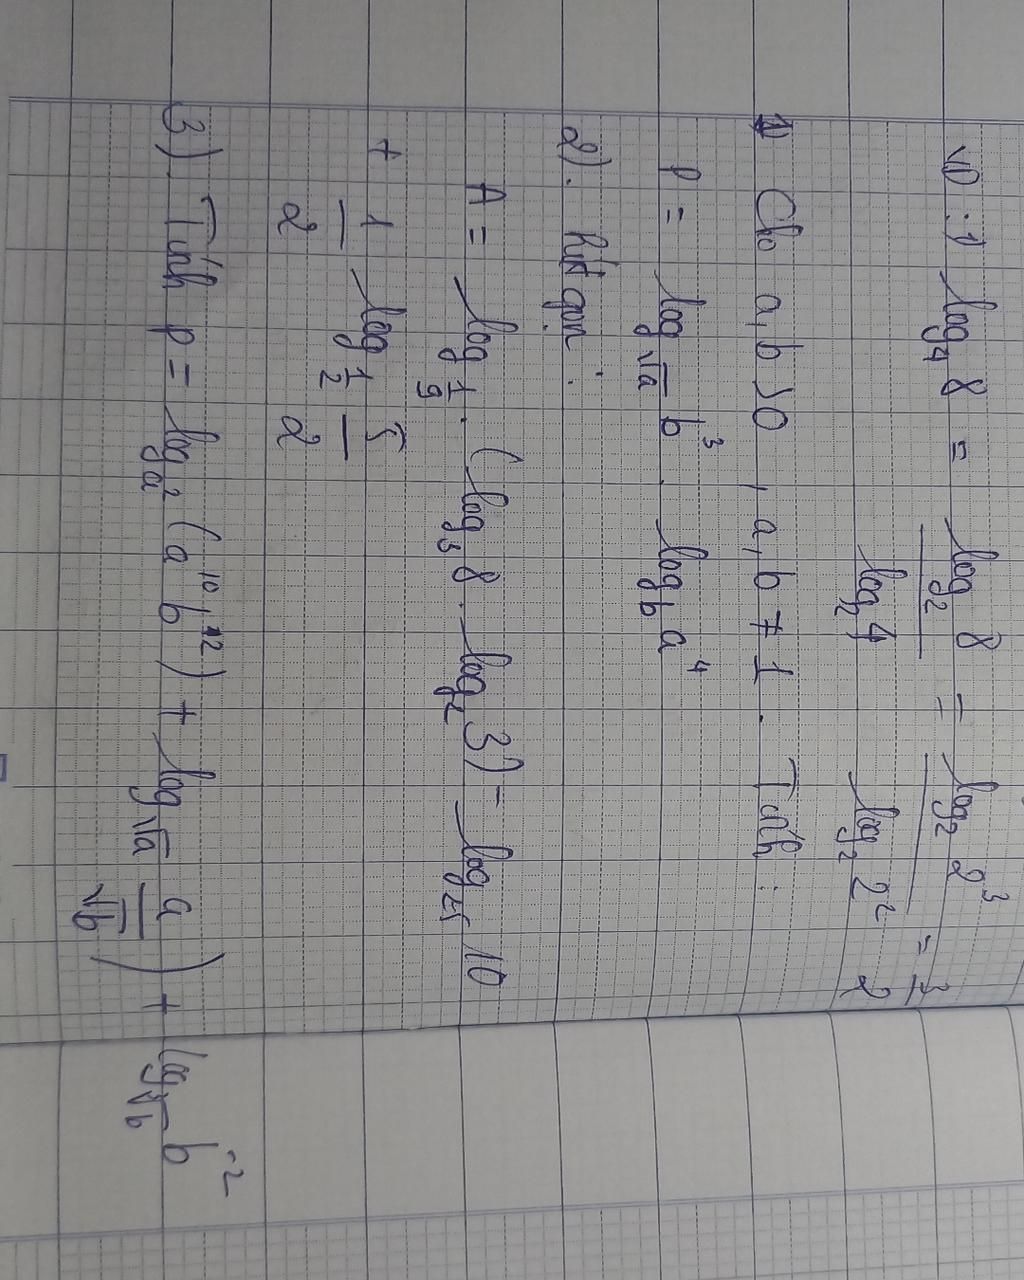 VD : 1) log₄ 8 = log₂ 8 / log₂ 4 = log₂ 2³ / log₂ 2² = 3/2
1 Cho a, b > 0 , a, b ≠ 1 . Tính :
P = log_√a b³ . log_b a⁴
2). Rút gọn :
A = log_(1/9) . (log₅ 8 . log₂ 3) - log₂₅ 10
+ 1/2 log_(1/2) 5/2
3) Tính P = log_a² (a¹⁰ b¹²) + log_√a (a/√b) + log_∛b b⁻²